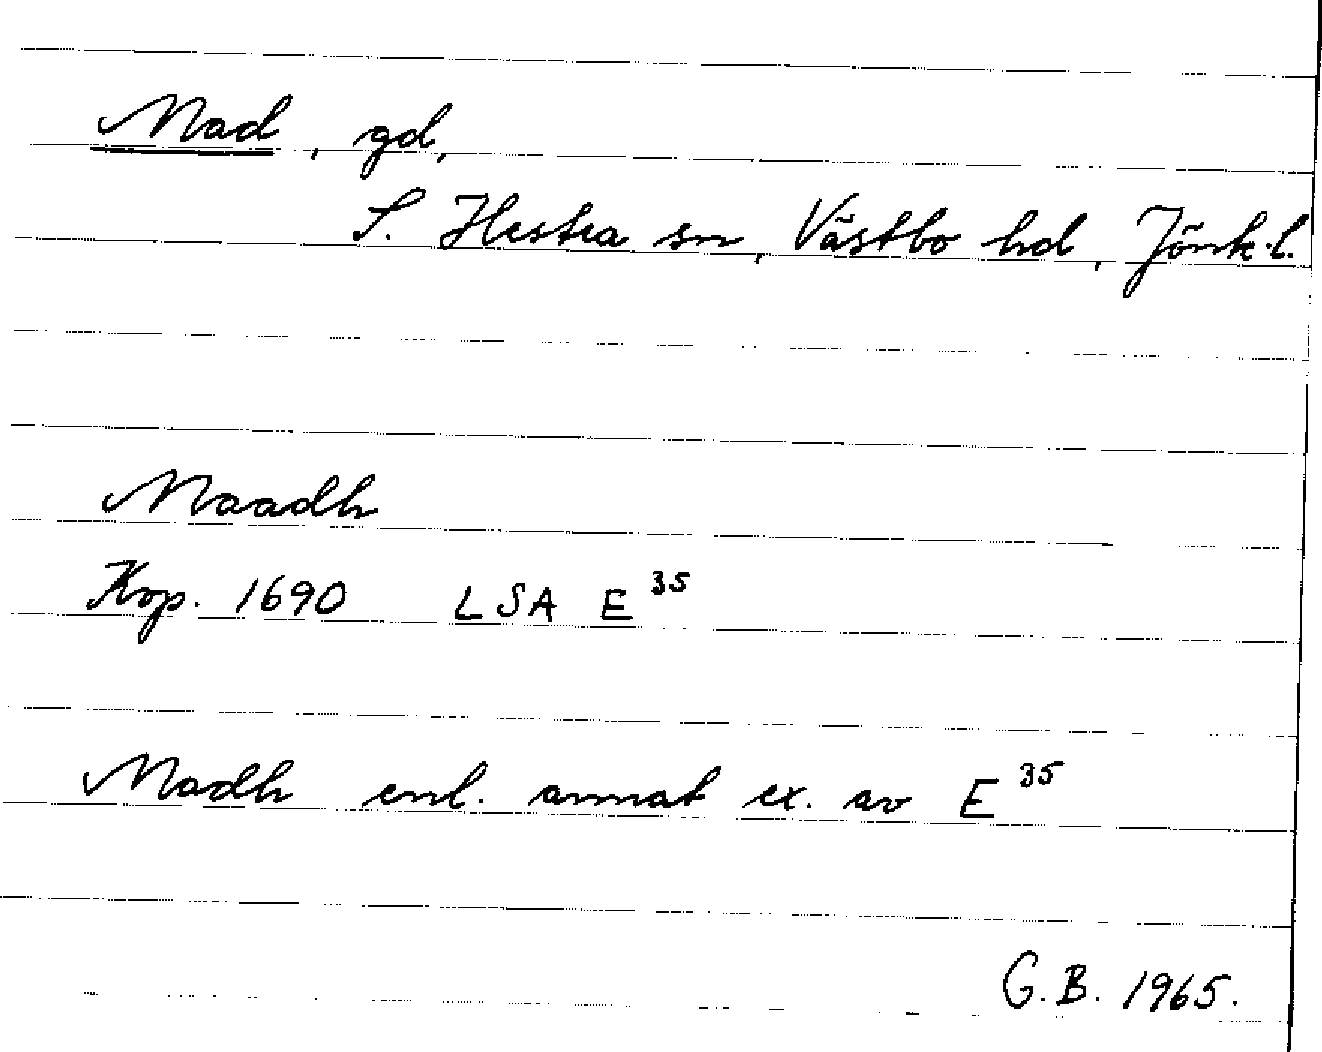 Mad, gd,
S. Hestra sn, Västbo hd, Jönk.l.
Maadh
Kop. 1690 LSA E 35
Madh enl. annat ex. av E 35
G.B. 1965.